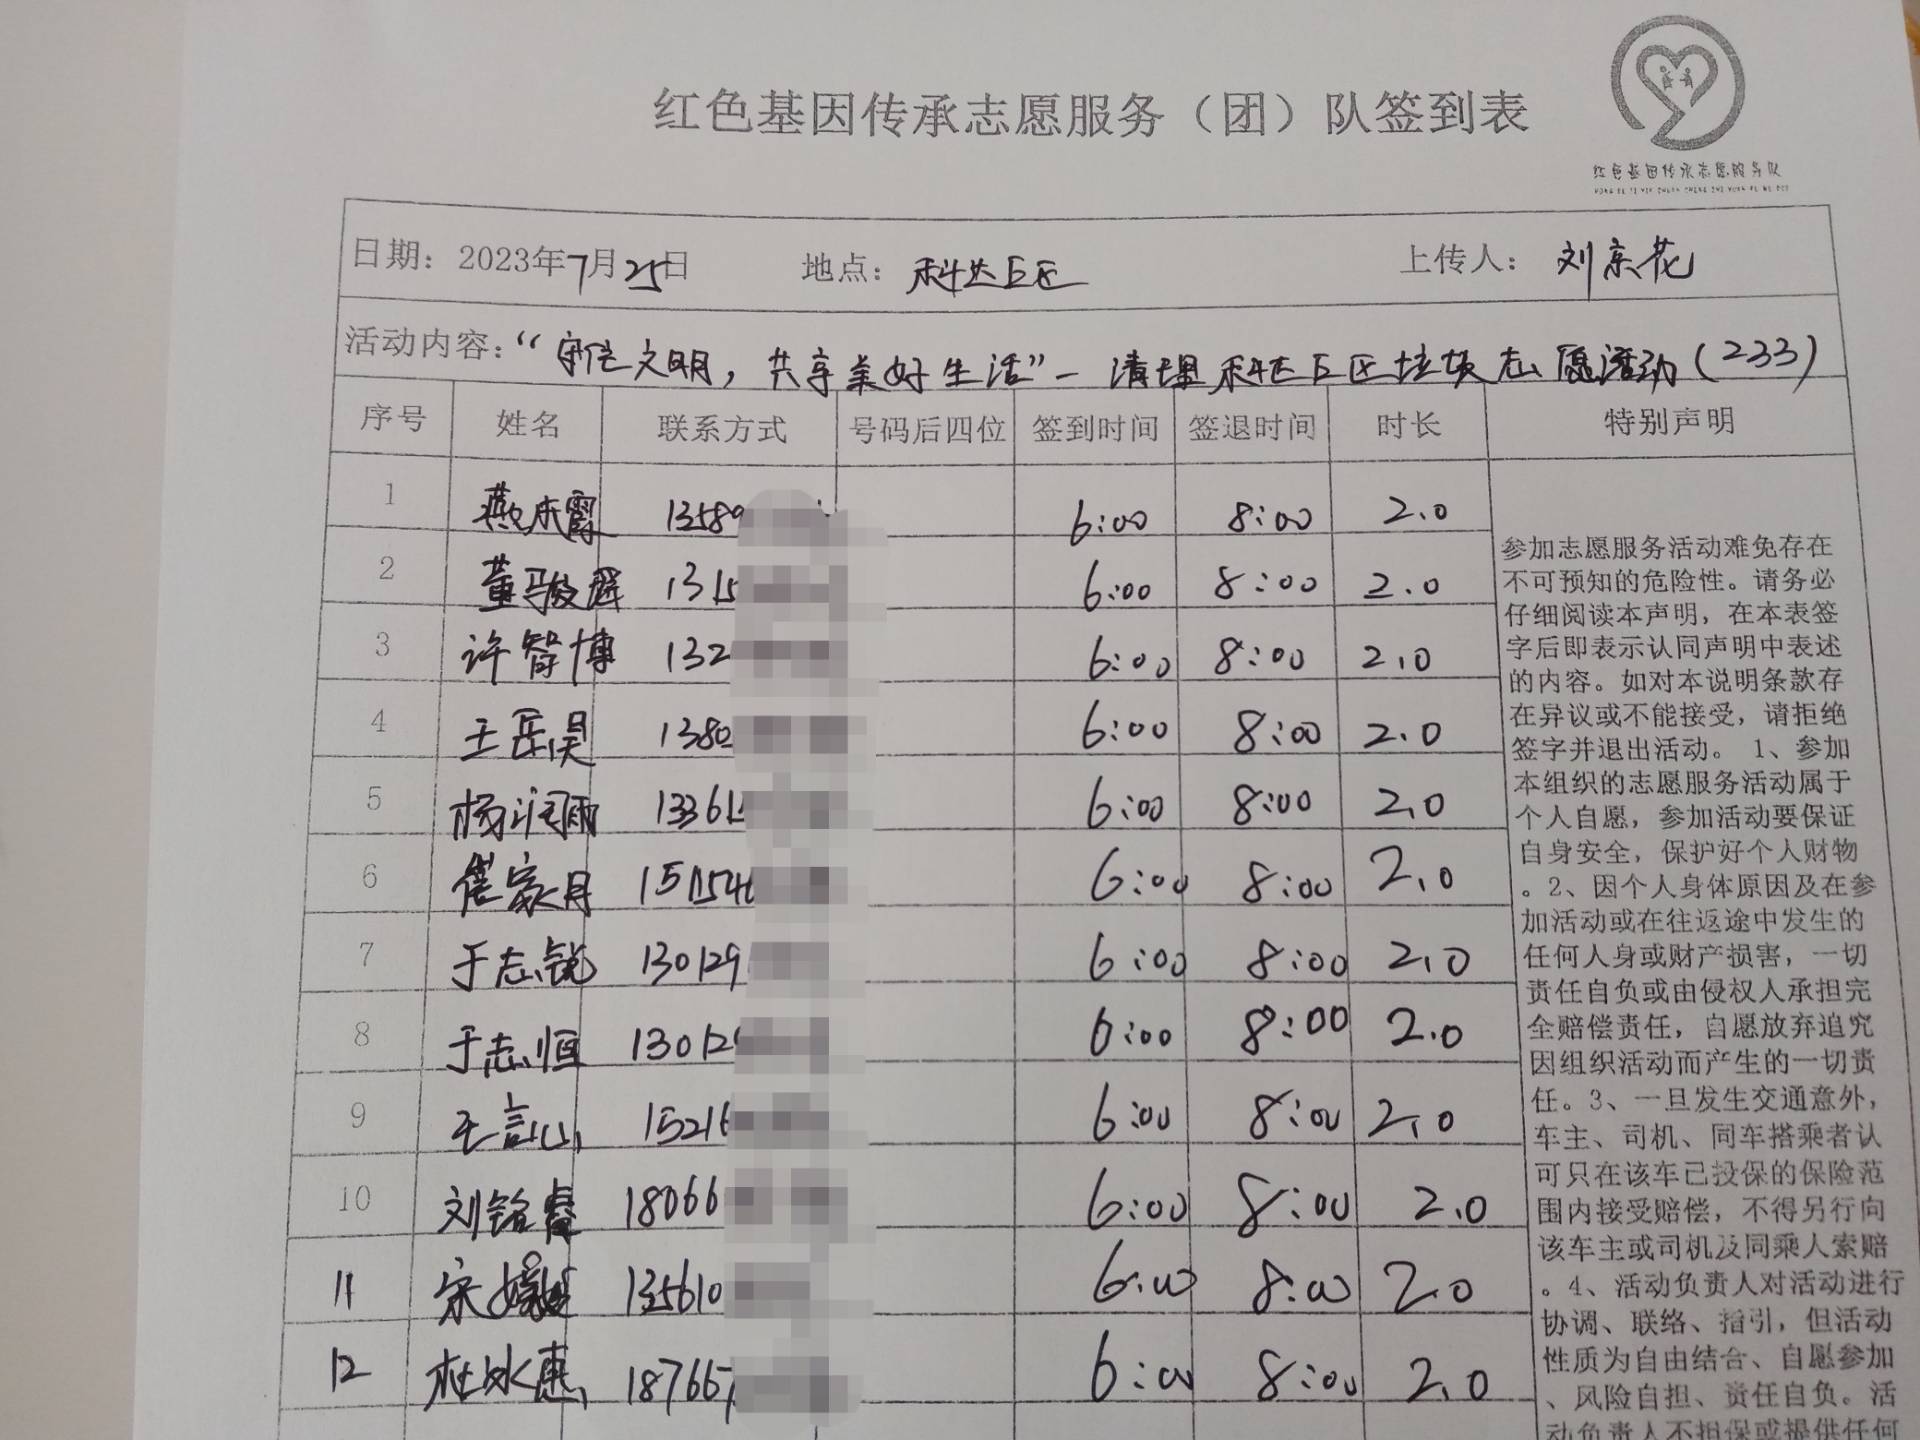 红色基因传承志愿服务（团）队签到表
红色基因传承志愿服务队
日期：2023年7月25日 地点：科达E区 上传人：刘京花
活动内容：“守信文明，共享美好生活”— 清理科达E区垃圾志愿活动(233)
序号 姓名 联系方式 号码后四位 签到时间 签退时间 时长 特别声明
1 燕术霞 13589 6:00 8:00 2.0
2 董骏辉 1315 6:00 8:00 2.0
3 许智博 132 6:00 8:00 2.0
4 王岳昊 1380 6:00 8:00 2.0
5 杨润雨 13361 6:00 8:00 2.0
6 崔家月 151154 6:00 8:00 2.0
7 于志锐 130129 6:00 8:00 2.0
8 于志恒 13012 6:00 8:00 2.0
9 王言山 1521 6:00 8:00 2.0
10 刘铭睿 18066 6:00 8:00 2.0
11 宋 135610 6:00 8:00 2.0
12 杜冰惠 18766 6:00 8:00 2.0
参加志愿服务活动难免存在
不可预知的危险性。请务必
仔细阅读本声明，在本表签
字后即表示认同声明中表述
的内容。如对本说明条款存
在异议或不能接受，请拒绝
签字并退出活动。 1、参加
本组织的志愿服务活动属于
个人自愿，参加活动要保证
自身安全，保护好个人财物
。2、因个人身体原因及在参
加活动或在往返途中发生的
任何人身或财产损害，一切
责任自负或由侵权人承担完
全赔偿责任，自愿放弃追究
因组织活动而产生的一切责
任。3、一旦发生交通意外，
车主、司机、同车搭乘者认
可只在该车已投保的保险范
围内接受赔偿，不得另行向
该车主或司机及同乘人索赔
。4、活动负责人对活动进行
协调、联络、指引，但活动
性质为自由结合、自愿参加
、风险自担、责任自负。活
动负责人不担保或提供任何